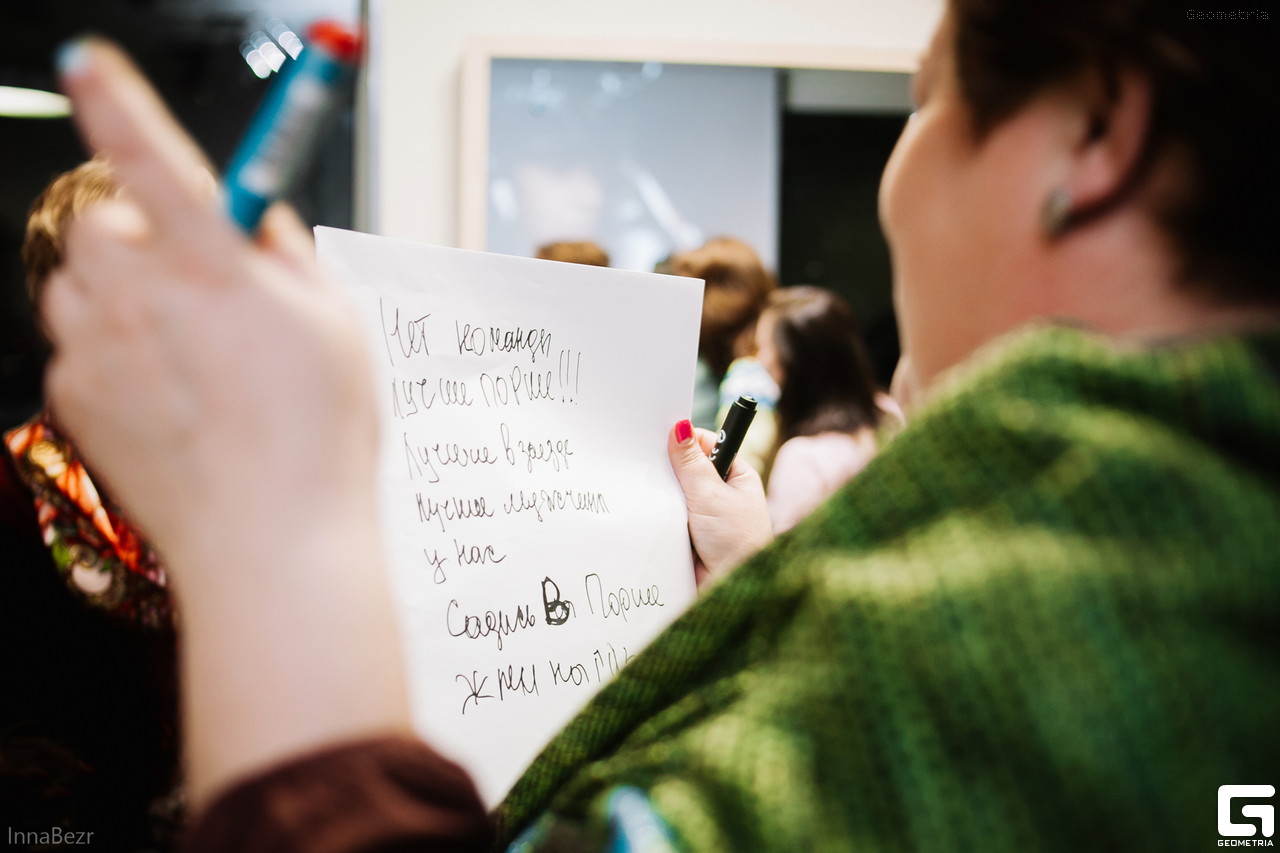 Geometria
Нет команды
Лучше Порше!!!
Лучшие в заезде
Лучшие мужчины
у нас
Садись В Порше
Жми на
InnaBezr
GEOMETRIA